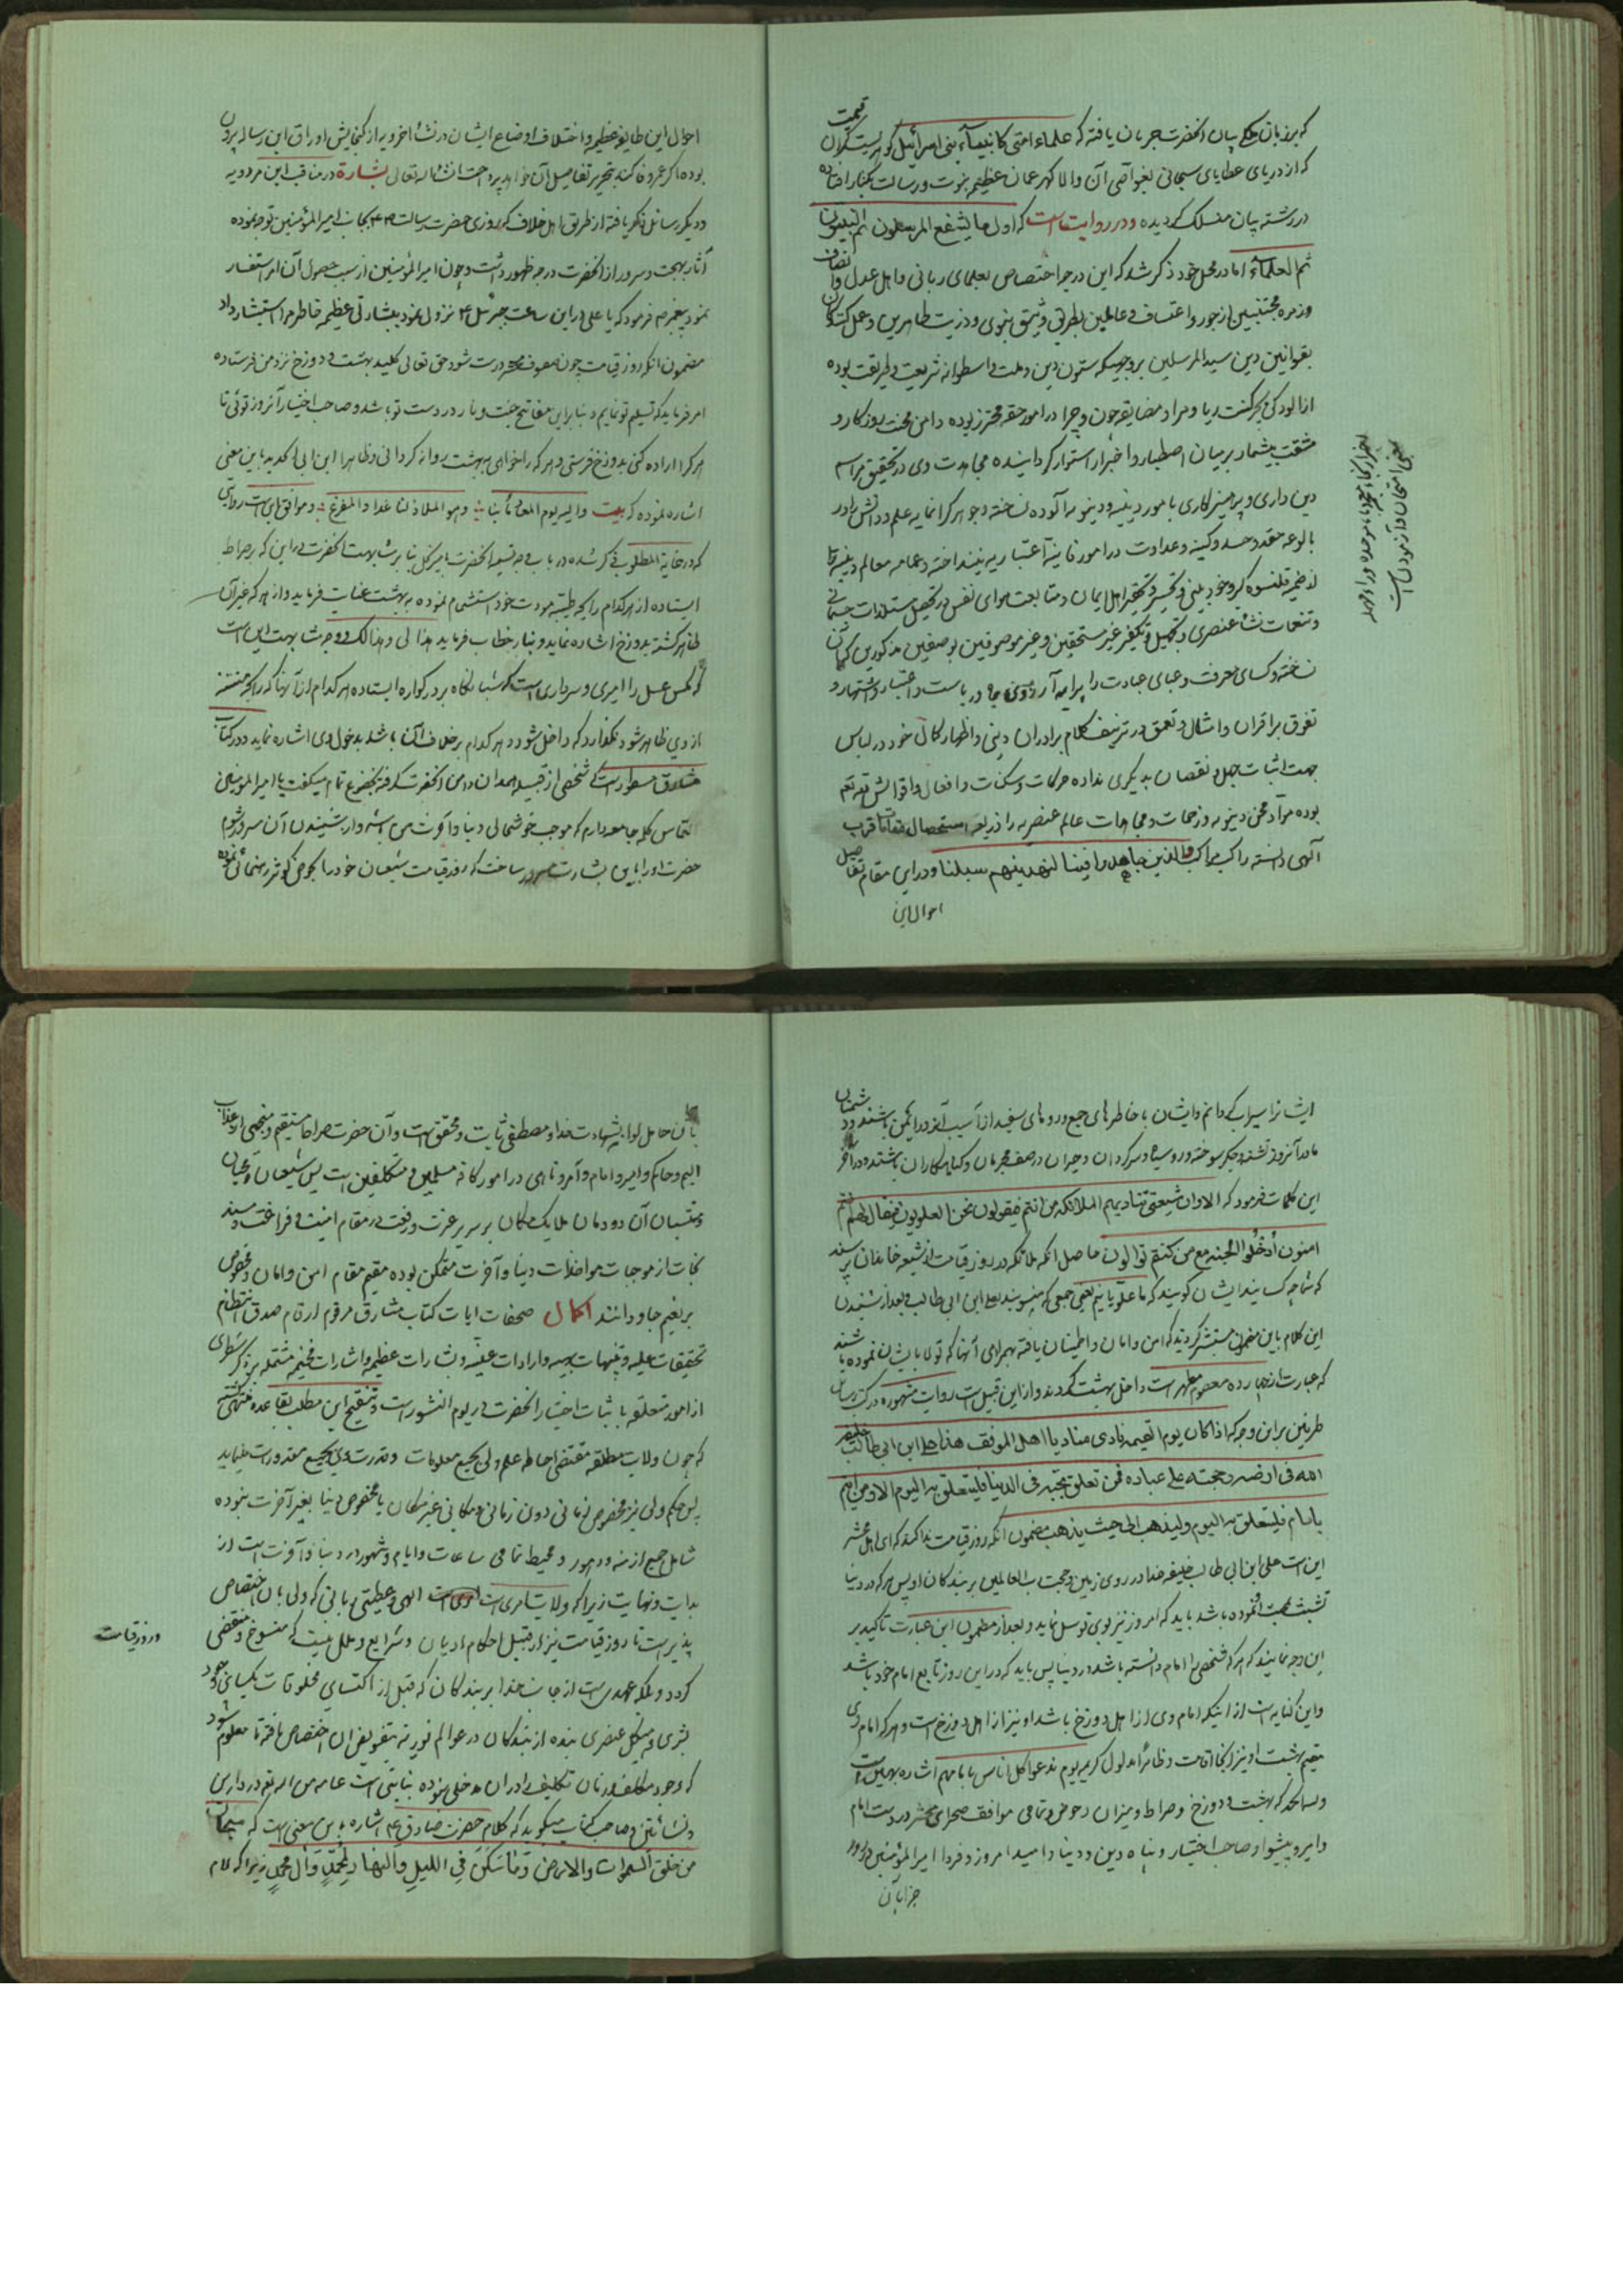 که بر زبان حکم بیان آنحضرت جریان یافته که علماء امتی کانبیآء بنی اسرائیل گوهریست گران قیمت
که از دریای عطایای سبحانی بغواصی آن والا گهر عمان عظیم نبوت و رسالت بکنار افتاده
در رشته بیان منسلک گردیده و در روایت است که اول ما یشفع المرسلون ثم النبیون
ثم العلمآء اما در محل خود ذکر شد که این درجه اختصاص بعلمای ربانی و اهل عدل و انصاف
و زمره مجتنبین از جور و اعتساف و عاملین بطریق نبوی و ذریت طاهرین و عمل کنندگان
بقوانین دین سید المرسلین بر وجهیکه ستون دین و ملت و اسطوانه شریعت و طریقت بوده
از الودگی ریا و مراء و مضایقه چون و چرا در امور حقه محترز بوده دامن محنت روزگار و
مشقت بیشمار بر میان اصطبار و اختبار استوار گردانیده مجاهدت وی در تحقیق مراسم
دین داری و پرهیزکاری بامور دینیه و دنیویه آلوده نساخته و جوهر گرانمایه علم و دانش را در
بالوعه حقد و حسد و کینه و عداوت در امور فانیه اعتباریه نینداخته و عمامه معالم دینیه را
و تنعمات نشأ عنصری و تجهیل و تکفیر غیر مستحقین و غیر موصوفین بوصفین مذکورین
نساخته و کسای معرفت و عبای عبادت را پیرایه آرزوی جاه و ریاست و اعتبار و اشتهار و
تفوق بر اقران و امثال و تعمق در تزییف کلام برادران دینی و اظهار کمال خود در لباس
جهت اثبات جهل و نقصان بدیگری نداده حرکات و سکنات و افعال و اقوالش
بوده مرآت محن دنیویه و زحمات و مجاهدات عالم عنصریه را ذریعه استحصال مقامات قرب
آلهی دانسته راکب مراکب والذین جاهدوا فینا لنهدینهم سبلنا و در این مقام تفاصیل
احوال این
احوال این طایفه عظیمه و اختلاف اوضاع ایشان در نشأ اخرویه از گنجایش اوراق این رساله بیرون
بوده اگر عمر وفا کند بتحریر تفاصیل آن خواهد پرداخت انشاء الله تعالی بشارة در مناقب ابن مردویه
و دیگر رسائل ذکر یافته از طریق اهل خلاف که روزی حضرت رسالت بجانب امیر المؤمنین توجه نموده
آثار بهجت و سرور از آنحضرت درجه ظهور داشت و چون امیر المؤمنین از سبب حصول آن امر استفسار
نمود پیغمبر فرمود که یا علی در این ساعت جبرئیل نزول نمود بشارتی عظیمه خاطر مرا استبشار داد
مضمون آنکه روز قیامت چون صفوف محشر درست شود حق تعالی کلید بهشت و دوزخ نزد من فرستاده
امر فرماید که تسلیم تو نمایم و بنابراین مفاتیح جنت و نار در دست تو باشد و صاحب اختیار آنروز توئی تا
هر کرا اراده کنی بدوزخ فرستی و هر که را خواهی به بهشت روانه گردانی و ظاهرا ابن ابی الحدید باین معنی
اشاره نموده که بیت و الیه یوم المعاد ایابنا و هو الملاذ لنا غدا و المفزع و موافق این است روایتی
ایستاده از هر کدام رایحه طیبه مودت خود استشمام نموده به بهشت عنایت فرماید و از هر که غیر آن
ظاهر گشته بدوزخ اشاره نماید و بنار خطاب فرماید هذا لی و هذا لک و وجه شباهت این است
که مگس عسل را امیری و سرداری است که شبانگاه بر در کواره ایستاده هر کدام از آنها که رایحه منتنه
از وی ظاهر شود نگذارد که داخل شود و هر کدام برخلاف آن باشد بدخول وی اشاره نماید و در کتاب
مشارق مسطور است که شخصی از قبیله همدان دامن آنحضرت گرفته بخضوع تمام میگفت یا امیر المؤمنین
التماس کلمه جامعه دارم که موجب خوشحالی دنیا و آخرت من باشد و از شنیدن آن مسرور شوم
حضرت او را باین بشارت مسرور ساخت که روز قیامت شیعیان خود را بحوض کوثر رهنمائی نموده
ایشانرا سیراب گردانم و ایشان با خاطرهای جمع و روهای سفید از آسیب آنروز ایمن باشند و دشمنان
ما در آنروز تشنه و جگر سوخته و رو سیاه و سرگردان و حیران در صف مجرمان و گناهکاران باشند و در آخر
این کلمات فرمود که الا و ان شیعتی تنادیهم الملائکة من انتم فیقولون نحن العلویون فیقال لهم انتم
امنون ادخلوا الجنة مع من کنتم توالون حاصل آنکه ملائکه در روز قیامت از شیعه خاندان پرسند
که شما چه کسانید ایشان گویند که ما علویانیم یعنی جمعی که منسوبند بعلی ابن ابی طالب و بعد از شنیدن
این کلام باین مضمون مستبشر گردند که امن و امان و اطمینان یافته بهمراهی آنها که تولا بایشان نموده باشند
که عبارت از چهارده معصوم مطهر است داخل بهشت گردند و از این قبیل است روایت مشهوره در کتب رسائل
طرفین بر این وجه که اذا کان یوم القیمه نادی منادیا اهل الموقف هذا علی ابن ابی طالب خلیفة
الله فی ارضه و حجته علی عباده فمن تعلق بحبه فی الدنیا فلیتعلق به الیوم الا و من ائتم
بامام فلیتعلق به الیوم و لیذهب الی حیث یذهب مضمون آنکه روز قیامت ندا کنند که ای اهل محشر
این است علی ابن ابی طالب خلیفه خدا در روی زمین و حجت رب العالمین بر بندگان او پس هر که در دنیا
تشبث بمحبت نموده باشد باید که امروز نیز بوی توسل نماید و بعد از مضمون این عبارت تاکید بر
این وجه نمایند که هر که شخصی را امام دانسته باشد در دنیا پس باید که در این روز تابع امام خود باشد
و این کنایه است از اینکه امام وی از اهل دوزخ باشد او نیز از اهل دوزخ است و هر که امام وی
مقیم بهشت او نیز آنجا اقامت و ظاهرا مدلول کریمه یوم ندعوا کل اناس بامامهم اشاره بهمین است
و لله الحمد که بهشت و دوزخ و صراط و میزان و حوض و تمامی مواقف صحرای محشر در دست امام
و امیر و پیشوا و صاحب اختیار و پناه دین و دنیا و امید امروز و فردا امیر المؤمنین
بآن حامل لوا بشهادت خدا و مصطفی ثابت و محقق است و آن حضرت صراط مستقیم و منجی از عذاب
الیم و حاکم و امیر و امام و آمر و ناهی در امور کافه مسلمین و مکلفین است پس شیعیان و محبان
و منتسبان آن دودمان ملایک مکان بر سریر عزت و رفعت در مقام امنیت و فراغت و سند
نجات از موجبات مواخذات دنیا و آخرت متمکن بوده مقیم مقام امن و امان و مخصوص
بر نعیم جاودانند اکمال صحفات ایات کتاب مشارق مرقوم ارقام صدق انتظام
تحقیقات علیه و تنبیهات بهیه و ارادات علیّه و بشارات عظیمه و اشارات فخیمه مشتمله بر ذکر سطری
از امور متعلقه باثبات اختیار آنحضرت در یوم النشور است و تنقیح این مطلب بقاعده منتهی گشته
که چون ولایت مطلقه مقتضی احاطه علم ولی بجمیع معلومات و قدرت وی بجمیع مقدورات مینماید
پس حکم ولی نیز مخصوص زمانی دون زمانی و مکانی غیر مکان یا مخصوص دنیا بغیر آخرت نبوده
شامل جمیع ازمنه و دهور و محیط تمامی ساعات و ایام و شهور در دنیا و آخرت است از
بدایت و نهایت زیرا که ولایت امری است الهی و عطیتی ربانی که ولی بآن اختصاص
پذیر است تا روز قیامت نیز از قبیل احکام ادیان و شرایع و ملل نیست که منسوخ و منقضی
و روز قیامت
گردد و بلکه عهدی است از جانب خدا بر بندگان که قبل از اکتسای مخلوقات بکسای وجود
بشری و هیکل عنصری بنده از بندگان در عوالم نوریه بتفویض آن اختصاص یافته تا معلوم شود
که وجود مکلف و زمان تکلیف در آن مدخلی نبوده نیابتی است عامه من الله تع در دارین
و نشأتین و صاحب کتاب میگوید که کلام حضرت صادق ع اشاره باین معنی است که سبحان
من خلق السموات والارض و ما سکن فی اللیل والنهار لمحمد و آل محمد زیرا که لام